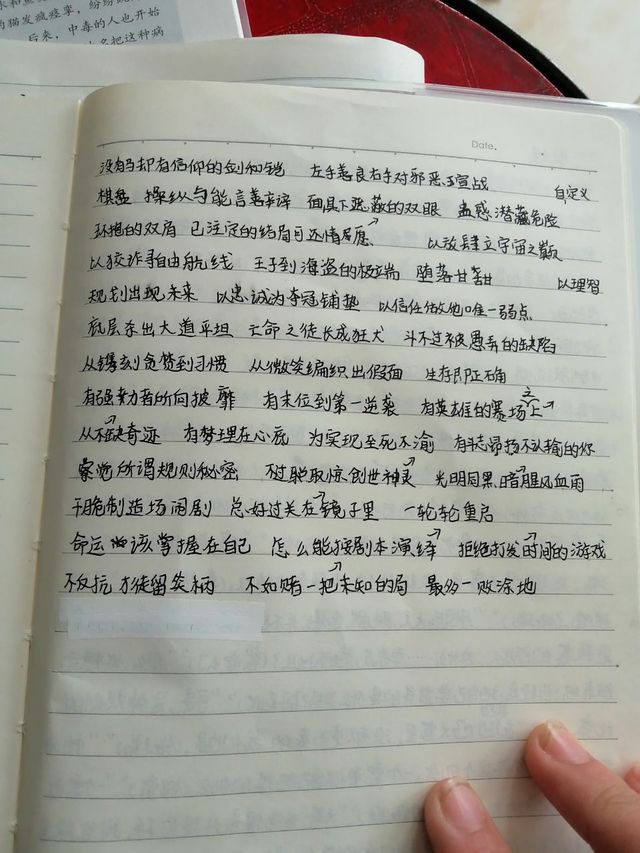 的猫发疯痉挛，纷纷跳
后来，中毒的人也开始
把这种病
Date.
没有弓却有信仰的剑和铠 左手善良右手对邪恶宣战 自定义
棋盘 操纵与能言善辩 面具下隐蔽的双眼 蛊惑潜藏危险
环抱的双肩 已注定的结局可还情愿 以放肆立宇宙之巅
以狡诈寻自由航线 王子到海盗的极端 堕落甘甜 以理智
规划出现未来 以忠诚为夺冠铺垫 以信任做他唯一弱点
底层杀出大道平坦 亡命之徒长成狂犬 斗不过被愚弄的缺陷
从镌刻贪婪到习惯 从微笑编织出假面 生存即正确
有强势力者所向披靡 有末位到第一逆袭 有英雄的赛场之上
从不缺奇迹 有梦埋在心底 为实现至死不渝 有志昂扬不认输的你
察觉所谓规则秘密 不过聪取惊创世神灵 光明同黑暗腥风血雨
干脆制造场闹剧 总好过关在镜子里 一轮轮重启
命运该掌握在自己 怎么能按剧本演绎 拒绝打发时间的游戏
不反抗才徒留笑柄 不如赌一把未知的局 最多一败涂地